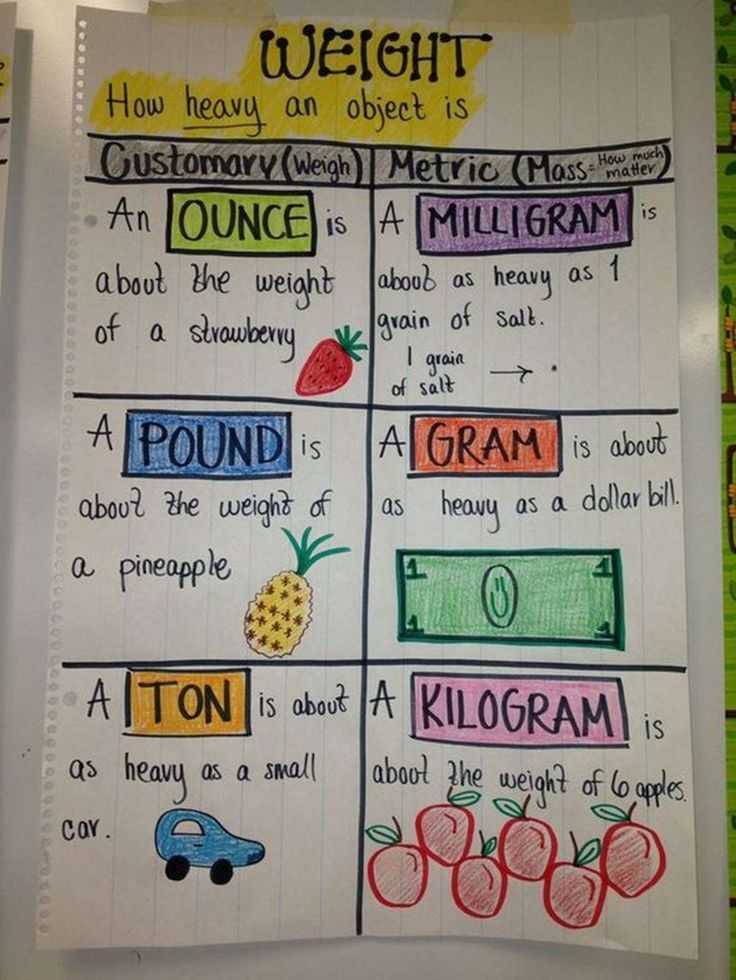 WEIGHT
How heavy an object is
Customary (Weigh)
Metric (Mass = How much matter)
An OUNCE is
about the weight
of a strawberry
A MILLIGRAM is
about as heavy as 1
grain of salt.
1 grain
of salt →
A POUND is
about the weight of
a pineapple
A GRAM is about
as heavy as a dollar bill.
1 1
1 1
A TON is about
as heavy as a small
car.
A KILOGRAM is
about the weight of 6 apples.